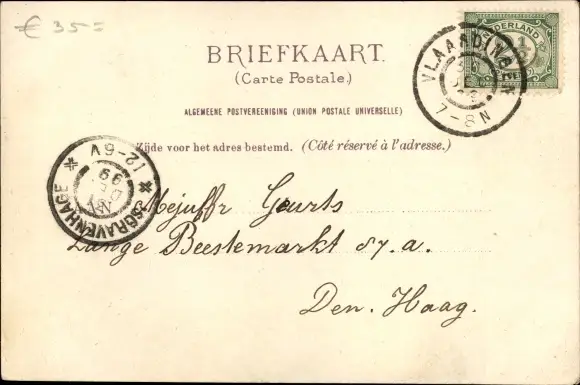 € 35=
NEDERLAND
VLAARDINGEN
7-8N
BRIEFKAART.
(Carte Postale.)
ALGEMEENE POSTVEREENIGING (UNION POSTALE UNIVERSELLE)
Zijde voor het adres bestemd. (Côté réservé à l'adresse.)
12-6V
99
'SGRAVENHAGE
Mejuffr Geurts
Lange Beestemarkt 87.a.
Den. Haag.